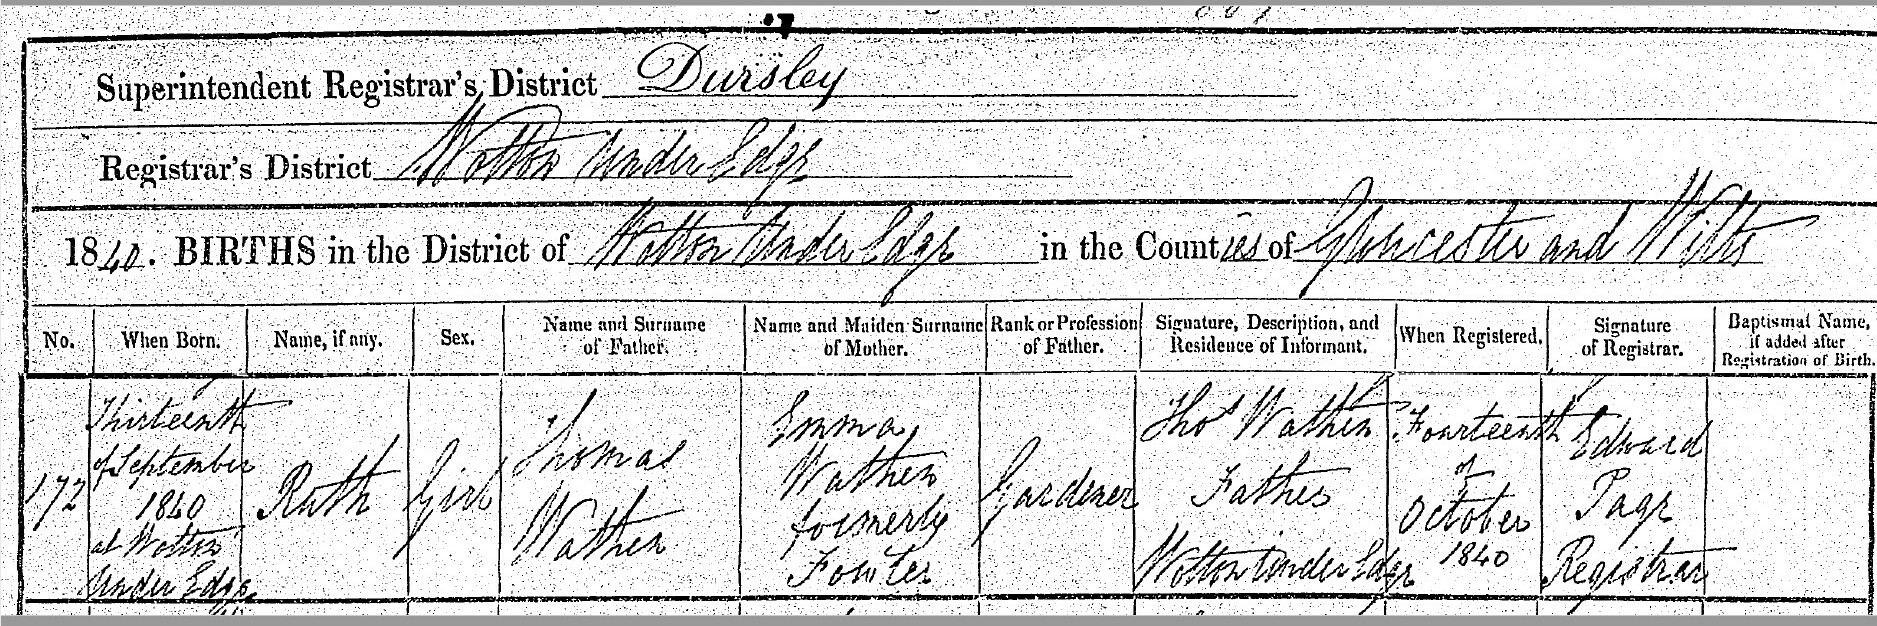 Superintendent Registrar's District Dursley
Registrar's District Wotton Under Edge
1840. BIRTHS in the District of Wotton Under Edge in the Counties of Gloucester and Wilts
No.
When Born.
Name, if any.
Sex.
Name and Surname
of Father.
Name and Maiden Surname
of Mother.
Rank or Profession
of Father.
Signature, Description, and
Residence of Informant.
When Registered.
Signature
of Registrar.
Baptismal Name,
if added after
Registration of Birth.
172
Thirteenth
of September
1840
at Wotton
Under Edge
Ruth
Girl
Thomas
Wathen
Emma
Wathen
formerly
Fowler
Gardener
Thos Wathen
Father
Wotton Under Edge
Fourteenth
of
October
1840
Edward
Page
Registrar